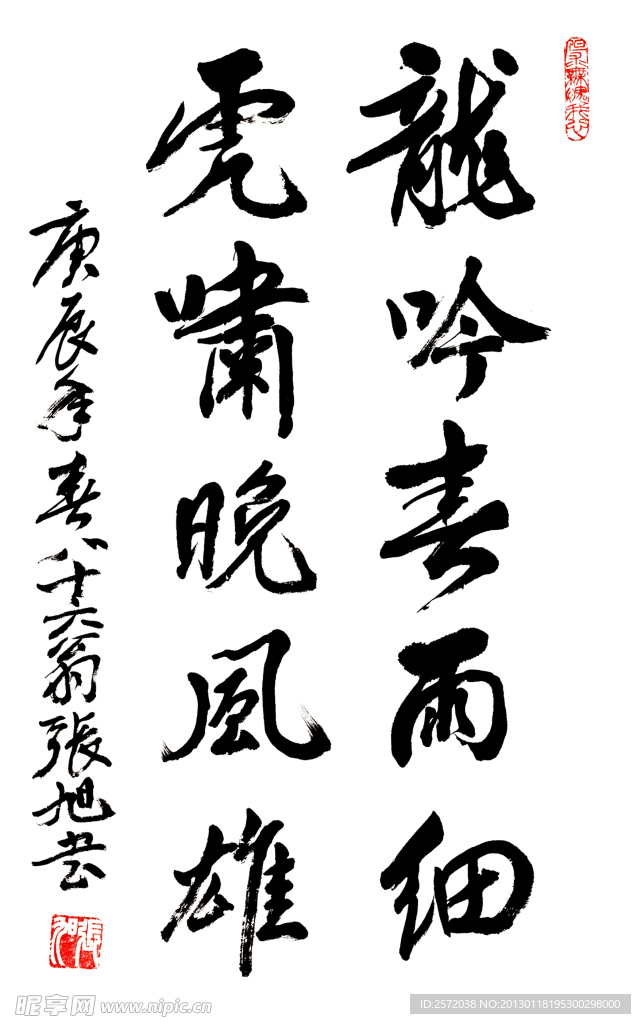 龍吟春雨細
虎嘯晚風雄
庚辰年春八十六翁張旭书
昵享网 www.nipic.cn
ID:2572038 NO:20130118195300298000